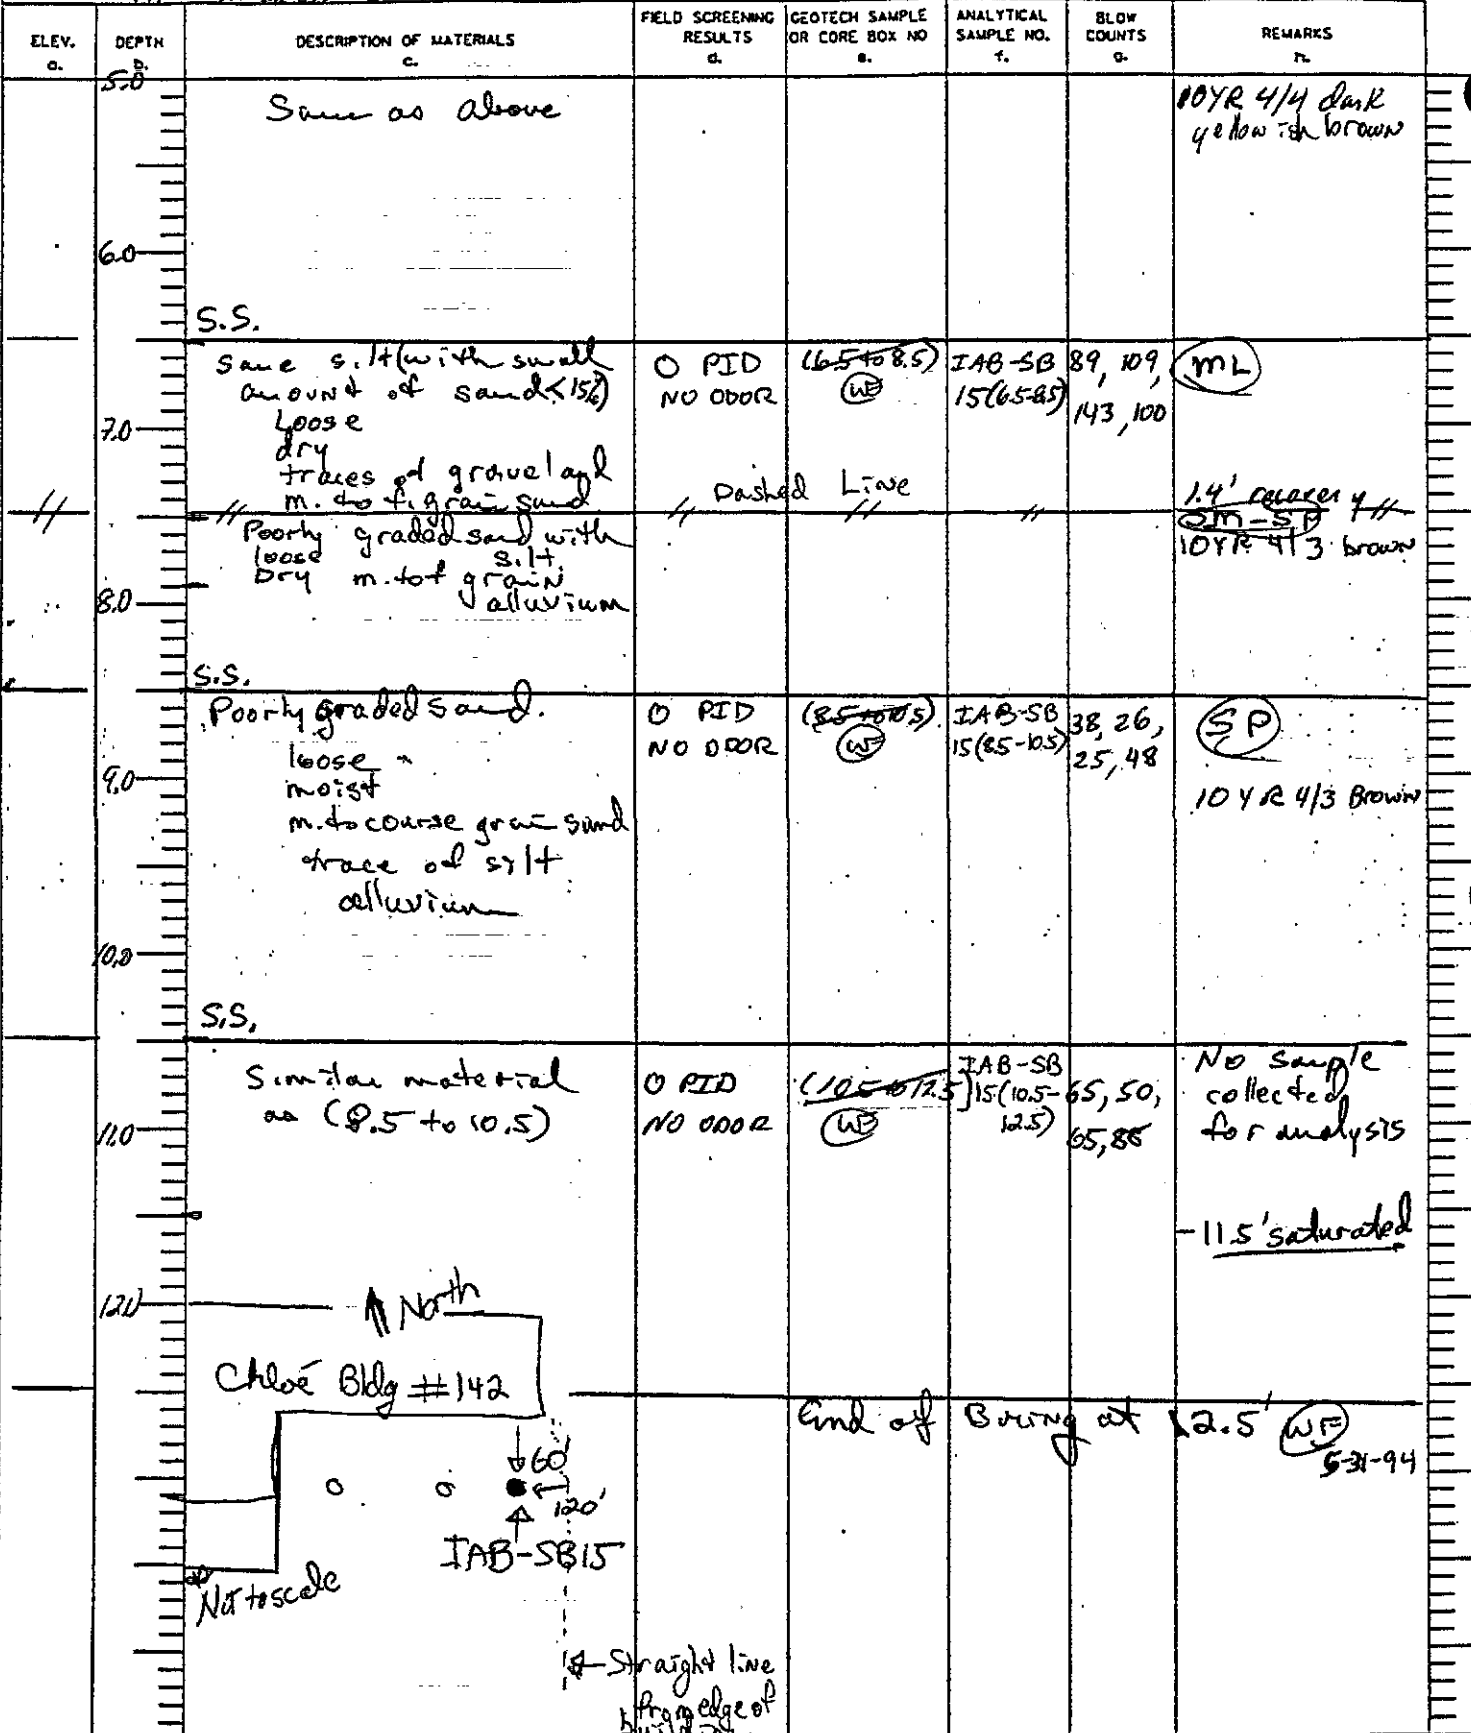 ELEV.
a.
DEPTH
b.
DESCRIPTION OF MATERIALS
c.
FIELD SCREENING
RESULTS
d.
GEOTECH SAMPLE
OR CORE BOX NO
e.
ANALYTICAL
SAMPLE NO.
f.
BLOW
COUNTS
g.
REMARKS
h.
5.0
Same as above
10YR 4/4 dark
yellowish brown
6.0
S.S.
Same silt (with small
amount of sand <15%)
Loose
dry
traces of gravel and
m. to f. grain sand
O PID
NO ODOR
(6.5 to 8.5)
WF
IAB-SB
15(6.5-8.5)
89, 109,
143, 100
ML
7.0
Dashed Line
1.4' recovery
SM-SP
10YR 4/3 brown
Poorly graded sand with
loose silt.
Dry m. to f grain
alluvium
8.0
S.S.
Poorly graded Sand.
loose
moist
m. to course grain sand
trace of silt
alluvium
O PID
NO ODOR
(8.5 to 10.5)
WF
IAB-SB
15(8.5-10.5)
38, 26,
25, 48
SP
10 YR 4/3 Brown
9.0
10.0
S.S.
Similar material
as (8.5 to 10.5)
O PID
NO ODOR
(10.5 to 12.5)
WF
IAB-SB
15(10.5-
12.5)
65, 50,
65, 85
No sample
collected
for analysis
11.0
-11.5' saturated
12.0
North
Chloé Bldg #142
End of Boring at 12.5' WF
5-31-94
60'
120'
IAB-SB15
Not to scale
Straight line
from edge of
building